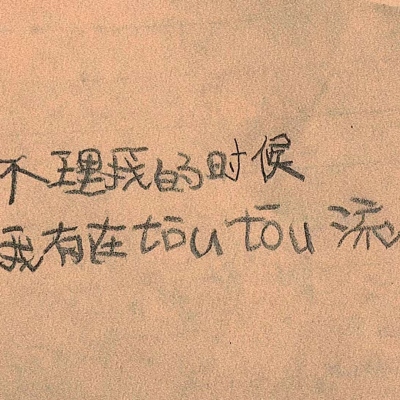 不理我的时候
我有在tōu tōu 流